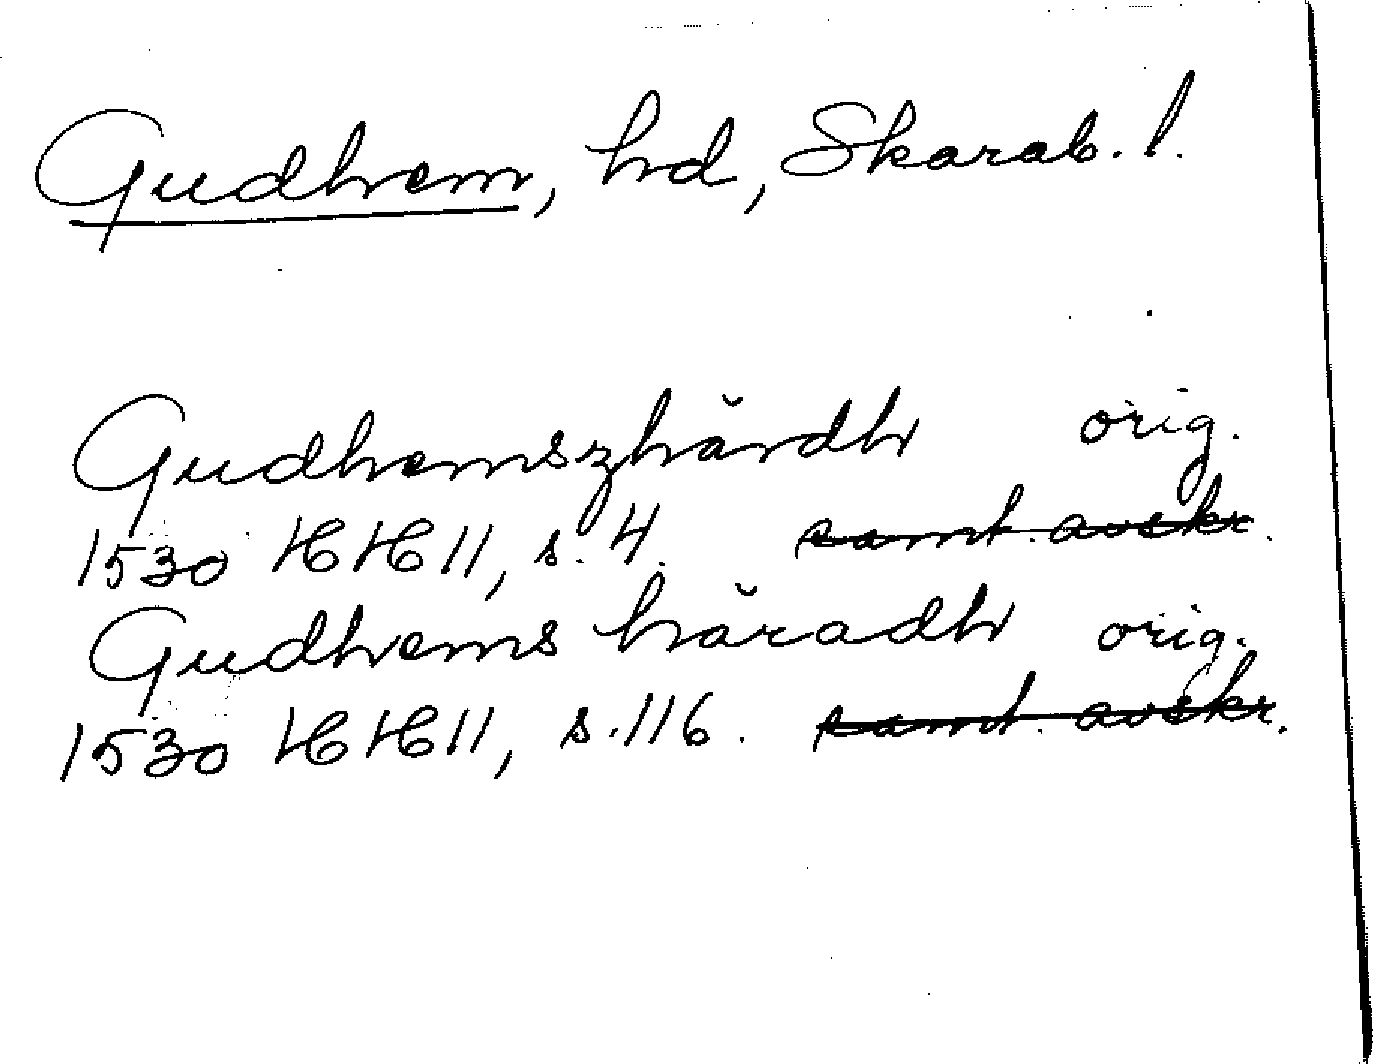 Gudhem, hd, Skarab. l.
Gudhemszhărdh orig.
1530 HH 11, s. 4. samt. avskr.
Gudhems hăradh orig.
1530 HH 11, s. 116. samt. avskr.